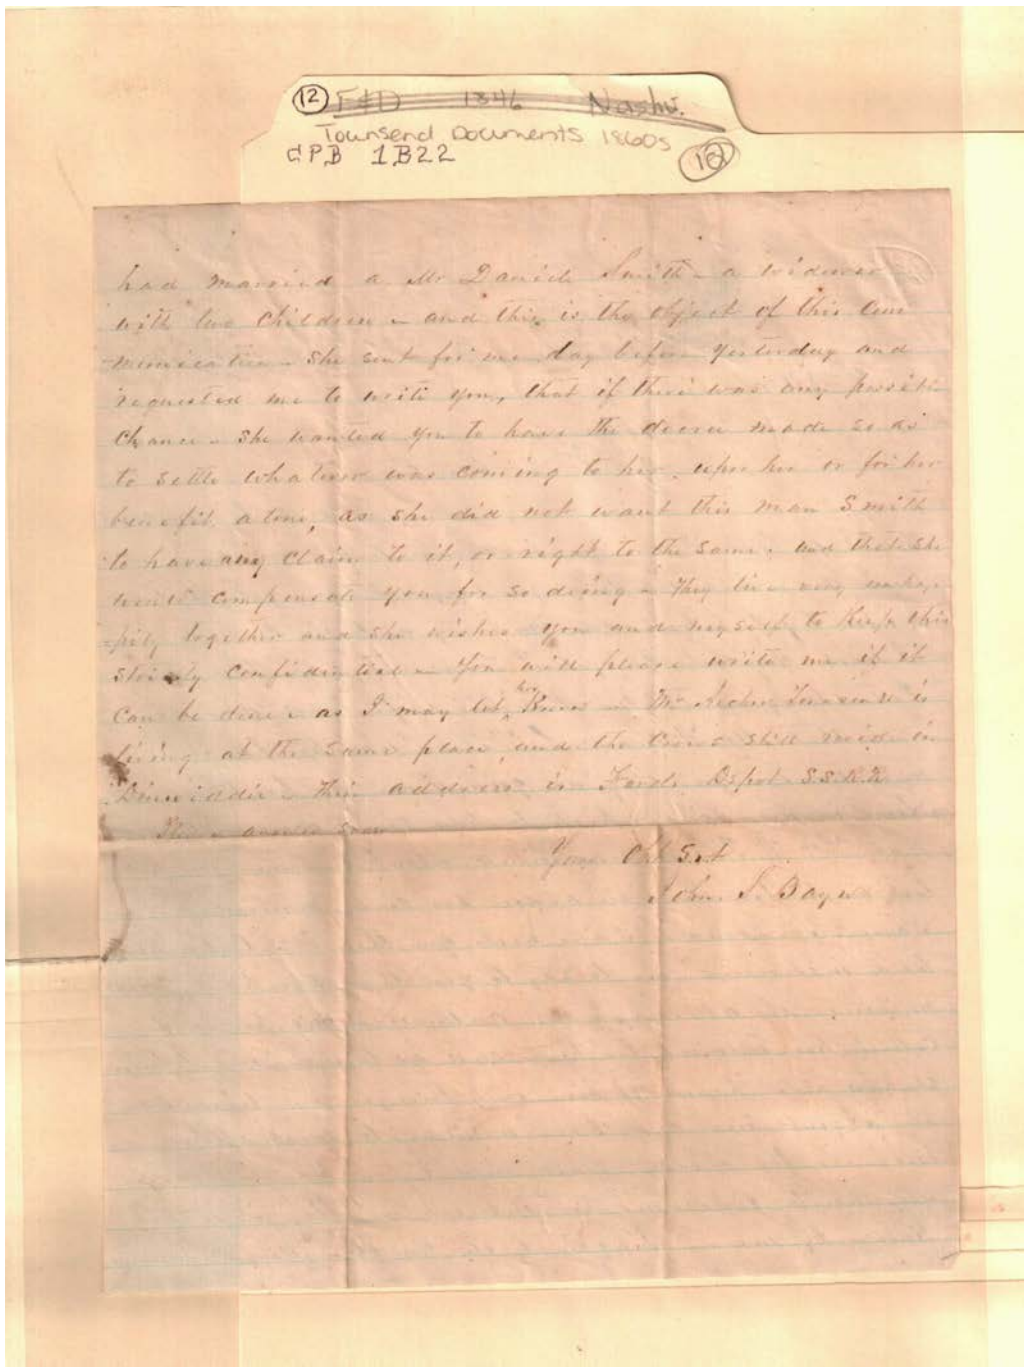 12 F&D 1846 Nashv.
Townsend Documents 1860s
CPB 1B22
12
had married a Mr Daniel Smith - a widower
with two Children - and this is the object of this Com
-munication - She sent for me day before yesterday and
requested me to write you, that if there was any possible
Chance - She wanted you to have the decree made so as
to settle whatever was coming to her, upon her or for her
benefit alone, as she did not want this man Smith
to have any claim to it, or right to the same. and that she
would compensate you for so doing - They live very unhap-
-pily together and she wishes you and myself to Keep this
strictly confidential - You will please write me if it
can be done - as I may let her Know - Mr is
living at the same place, and the still reside in
Dinwiddie - Their address is Fords Depot S.S.R.R.
answer soon
Your Obt Svt
John S.